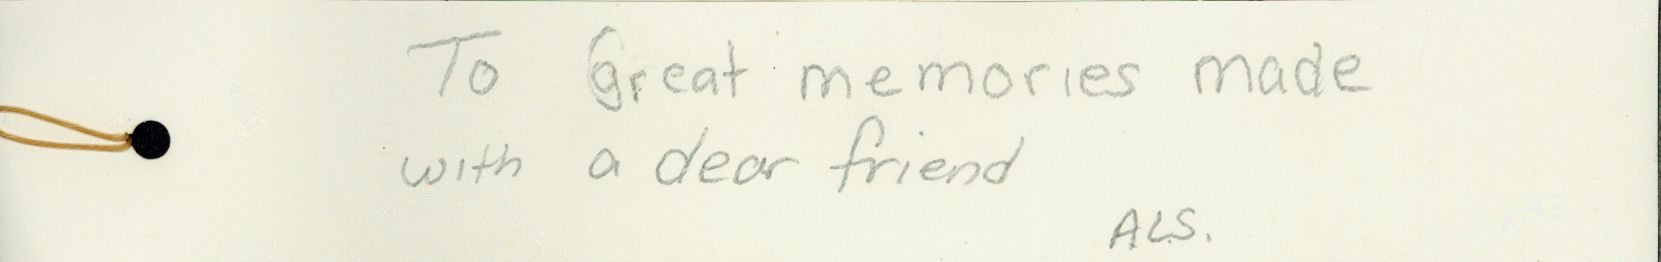 To Great memories made
with a dear friend
ALS.